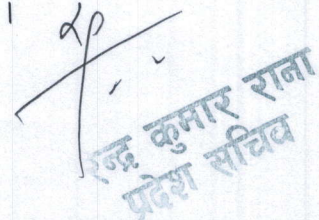 ।
रेन्द्र कुमार राना
प्रदेश सचिव